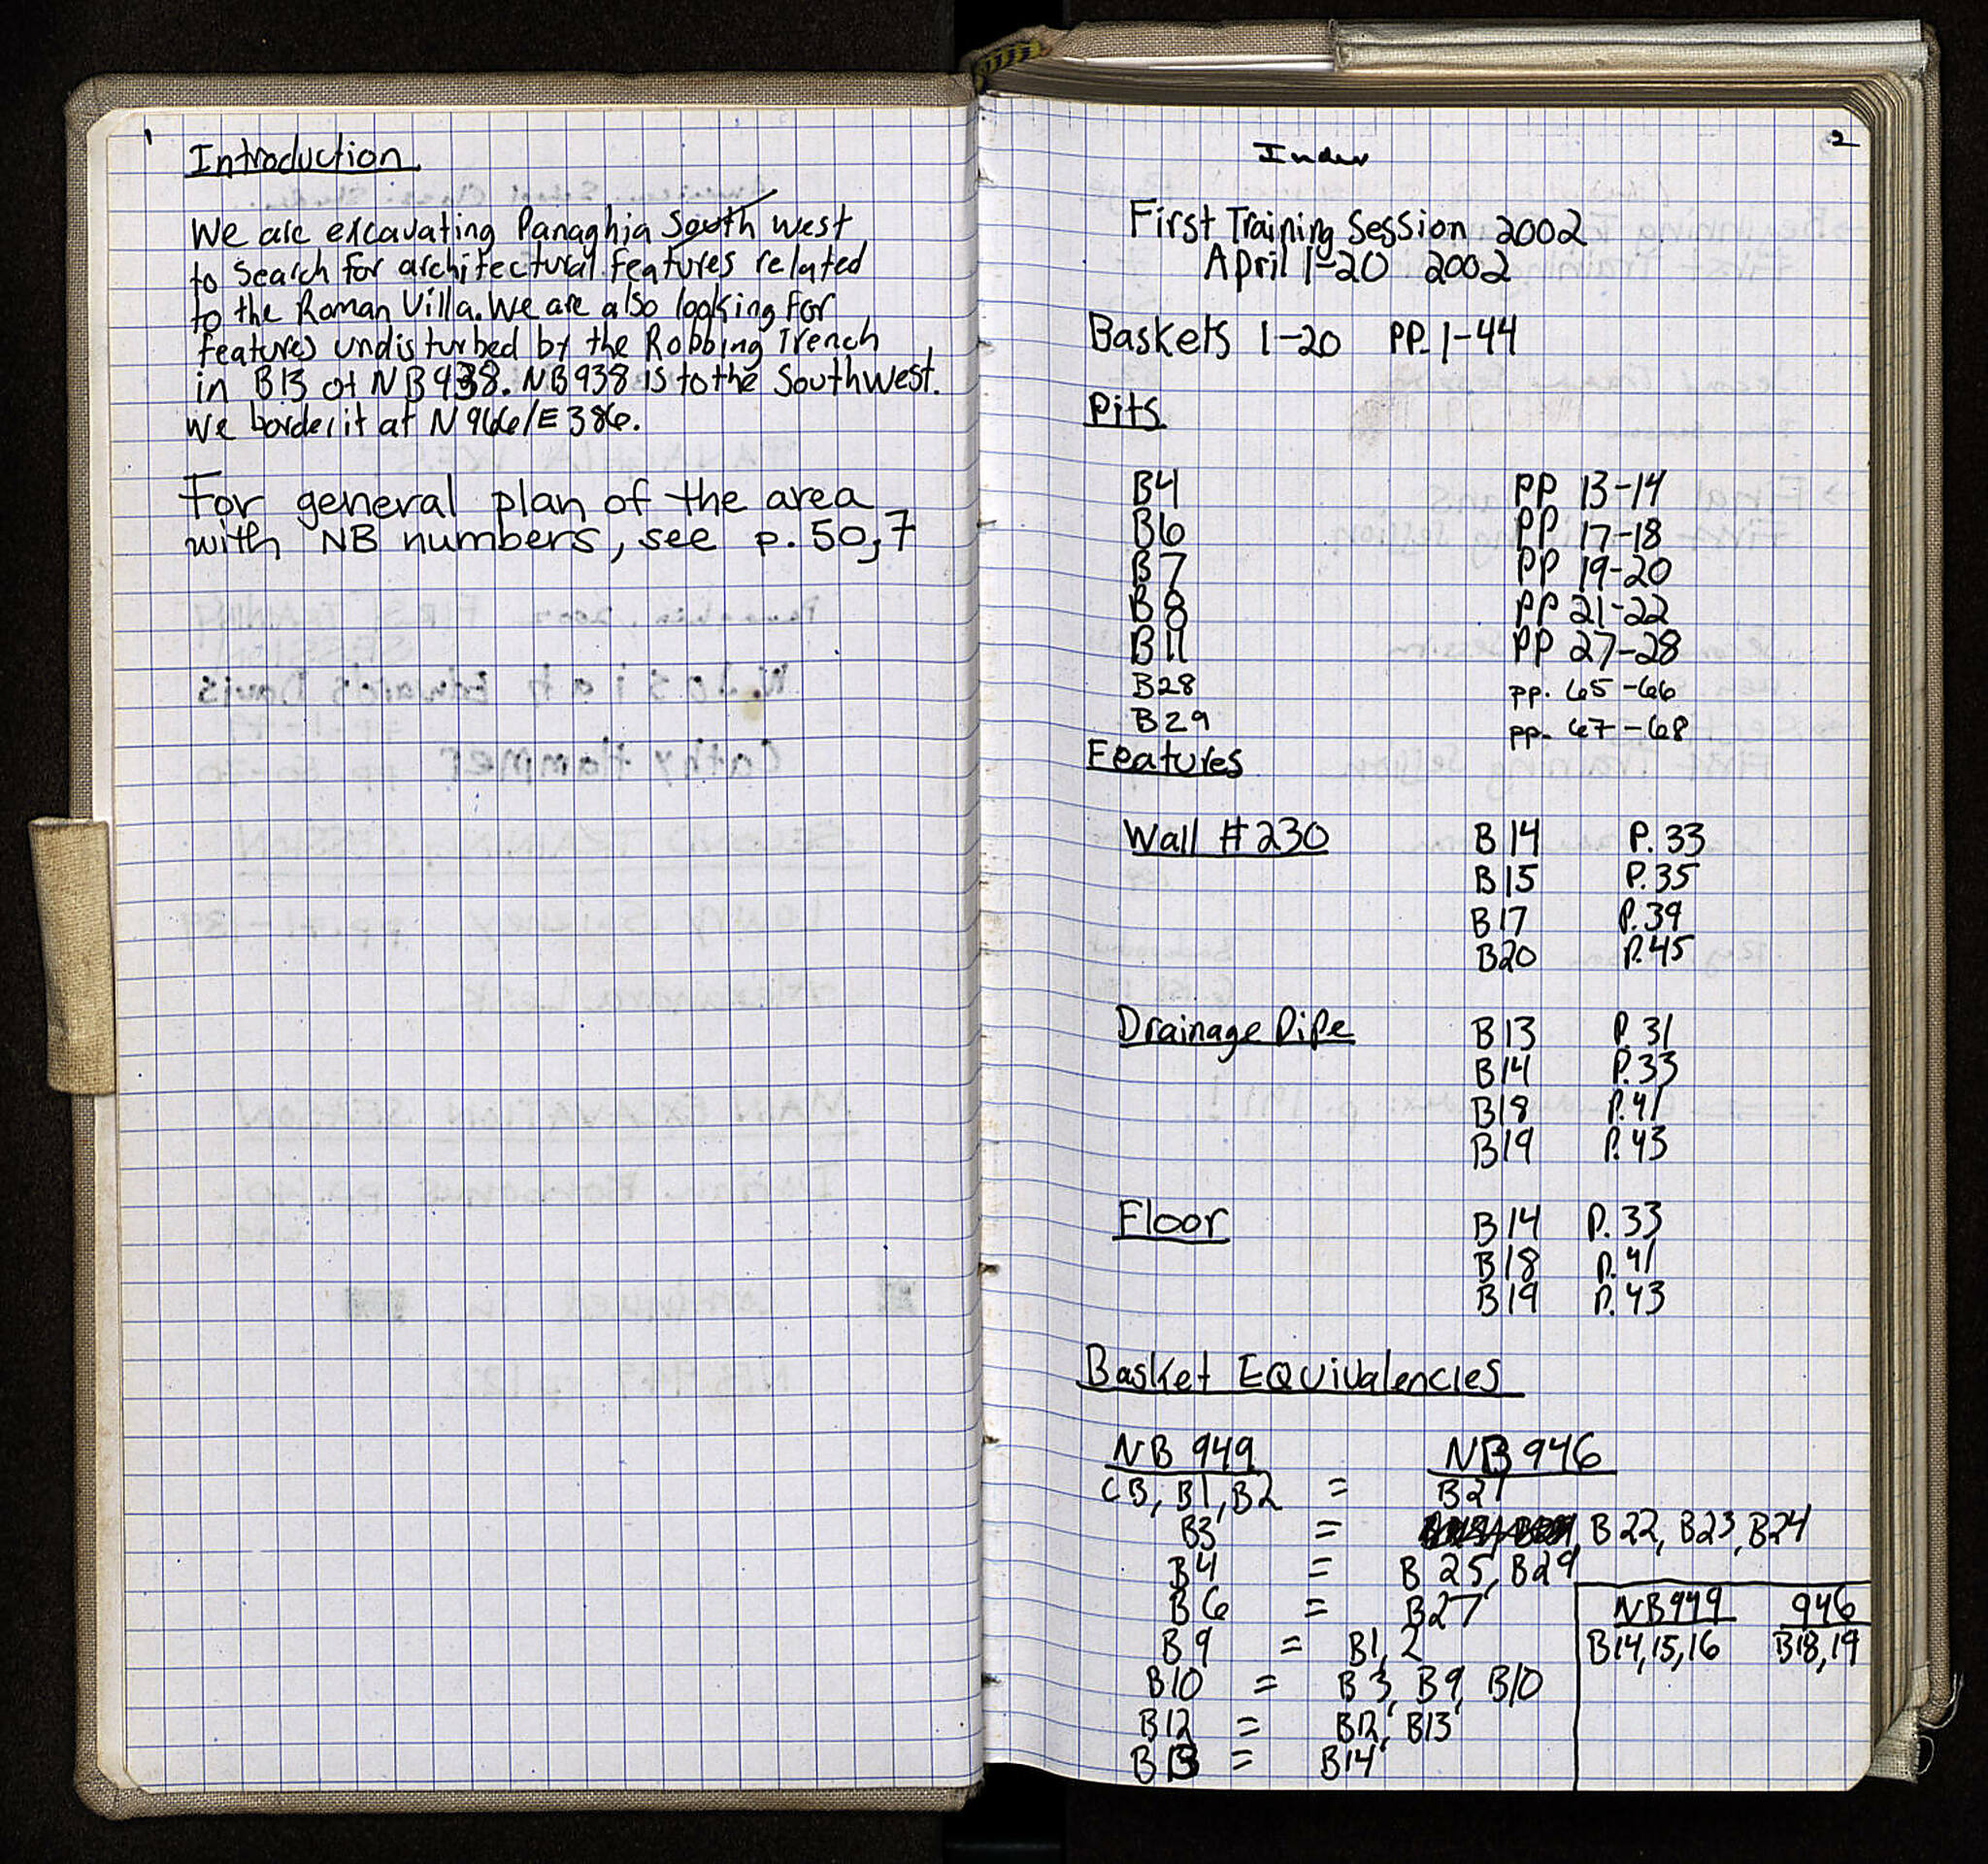 1
Introduction
We are excavating Panaghia South west
to search for architectural features related
to the Roman Villa. We are also looking for
features undisturbed by the Robbing Trench
in B13 of NB938. NB938 is to the Southwest.
We border it at N966/E386.
For general plan of the area
with NB numbers, see p. 50, 7
2
Index
First Training Session 2002
April 1-20 2002
Baskets 1-20 PP. 1-44
Pits
B4 PP 13-14
B6 PP 17-18
B7 PP 19-20
B8 PP 21-22
B11 PP 27-28
B28 pp. 65-66
B29 pp. 67-68
Features
Wall #230 B14 P. 33
B15 P. 35
B17 P. 39
B20 P. 45
Drainage Pipe B13 P. 31
B14 P. 33
B18 P. 41
B19 P. 43
Floor B14 P. 33
B18 P. 41
B19 P. 43
Basket Equivalencies
NB 949 NB 946
CB, B1, B2 = B21
B3 = B22, B23, B24
B4 = B25, B29
B6 = B27
B9 = B1, 2
B10 = B3, B9, B10
B12 = B12, B13
B13 = B14
NB949 946
B14,15,16 B18,19